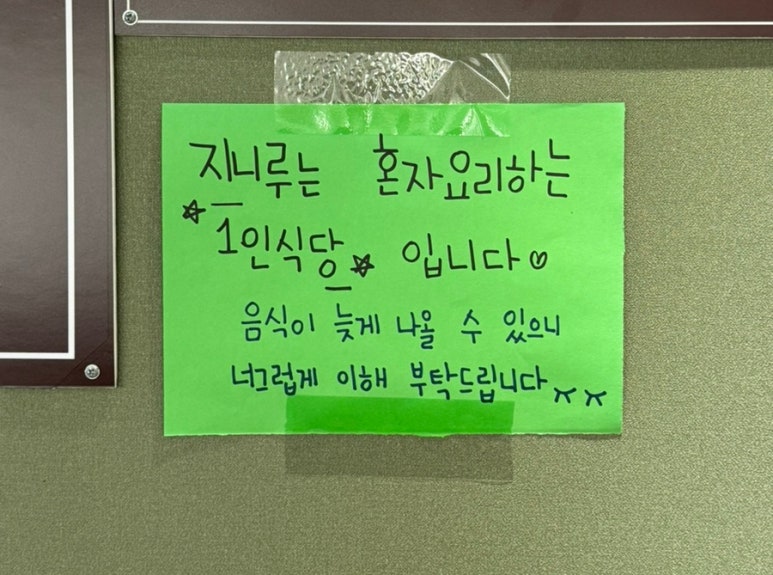 지니루는 혼자요리하는
☆1인식당☆ 입니다♡
음식이 늦게 나올 수 있으니
너그럽게 이해 부탁드립니다ㅈㅈ